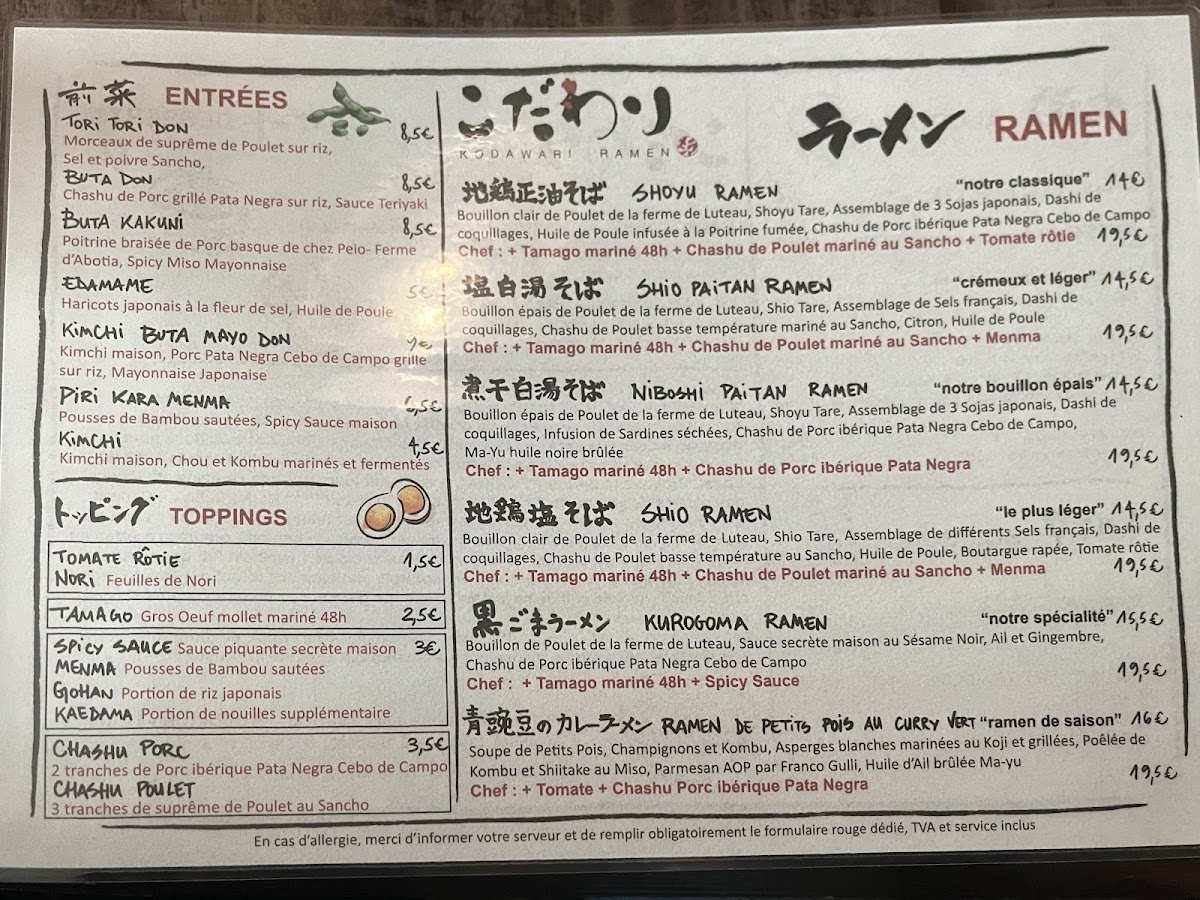 前菜 ENTRÉES
TORI TORI DON 8,5€
Morceaux de suprême de Poulet sur riz,
Sel et poivre Sancho,
BUTA DON 8,5€
Chashu de Porc grillé Pata Negra sur riz, Sauce Teriyaki
BUTA KAKUNI 8,5€
Poitrine braisée de Porc basque de chez Peio- Ferme
d'Abotia, Spicy Miso Mayonnaise
EDAMAME 5€
Haricots japonais à la fleur de sel, Huile de Poule
KIMCHI BUTA MAYO DON
Kimchi maison, Porc Pata Negra Cebo de Campo grille
sur riz, Mayonnaise Japonaise
PIRI KARA MENMA
Pousses de Bambou sautées, Spicy Sauce maison
KIMCHI 4,5€
Kimchi maison, Chou et Kombu marinés et fermentés
トッピング TOPPINGS
TOMATE RÔTIE 1,5€
NORI Feuilles de Nori
TAMAGO Gros Oeuf mollet mariné 48h 2,5€
SPICY SAUCE Sauce piquante secrète maison 3€
MENMA Pousses de Bambou sautées
GOHAN Portion de riz japonais
KAEDAMA Portion de nouilles supplémentaire
CHASHU PORC 3,5€
2 tranches de Porc ibérique Pata Negra Cebo de Campo
CHASHU POULET
3 tranches de suprême de Poulet au Sancho
こだわり
KODAWARI RAMEN
ラーメン RAMEN
地鶏正油そば SHOYU RAMEN "notre classique" 14€
Bouillon clair de Poulet de la ferme de Luteau, Shoyu Tare, Assemblage de 3 Sojas japonais, Dashi de
coquillages, Huile de Poule infusée à la Poitrine fumée, Chashu de Porc ibérique Pata Negra Cebo de Campo
Chef : + Tamago mariné 48h + Chashu de Poulet mariné au Sancho + Tomate rôtie 19,5€
塩白湯そば SHIO PAITAN RAMEN "crémeux et léger" 14,5€
Bouillon épais de Poulet de la ferme de Luteau, Shio Tare, Assemblage de Sels français, Dashi de
coquillages, Chashu de Poulet basse température mariné au Sancho, Citron, Huile de Poule
Chef : + Tamago mariné 48h + Chashu de Poulet mariné au Sancho + Menma 19,5€
煮干白湯そば NIBOSHI PAITAN RAMEN "notre bouillon épais" 14,5€
Bouillon épais de Poulet de la ferme de Luteau, Shoyu Tare, Assemblage de 3 Sojas japonais, Dashi de
coquillages, Infusion de Sardines séchées, Chashu de Porc ibérique Pata Negra Cebo de Campo,
Ma-Yu huile noire brûlée
Chef : + Tamago mariné 48h + Chashu de Porc ibérique Pata Negra 19,5€
地鶏塩そば SHIO RAMEN "le plus léger" 14,5€
Bouillon clair de Poulet de la ferme de Luteau, Shio Tare, Assemblage de différents Sels français, Dashi de
coquillages, Chashu de Poulet basse température au Sancho, Huile de Poule, Boutargue rapée, Tomate rôtie
Chef : + Tamago mariné 48h + Chashu de Poulet mariné au Sancho + Menma 19,5€
黒ごまラーメン KUROGOMA RAMEN "notre spécialité" 15,5€
Bouillon de Poulet de la ferme de Luteau, Sauce secrète maison au Sésame Noir, Ail et Gingembre,
Chashu de Porc ibérique Pata Negra Cebo de Campo
Chef : + Tamago mariné 48h + Spicy Sauce 19,5€
青豌豆のカレーラーメン RAMEN DE PETITS POIS AU CURRY VERT "ramen de saison" 16€
Soupe de Petits Pois, Champignons et Kombu, Asperges blanches marinées au Koji et grillées, Poêlée de
Kombu et Shiitake au Miso, Parmesan AOP par Franco Gulli, Huile d'Ail brûlée Ma-yu
Chef : + Tomate + Chashu Porc ibérique Pata Negra 19,5€
En cas d'allergie, merci d'informer votre serveur et de remplir obligatoirement le formulaire rouge dédié, TVA et service inclus